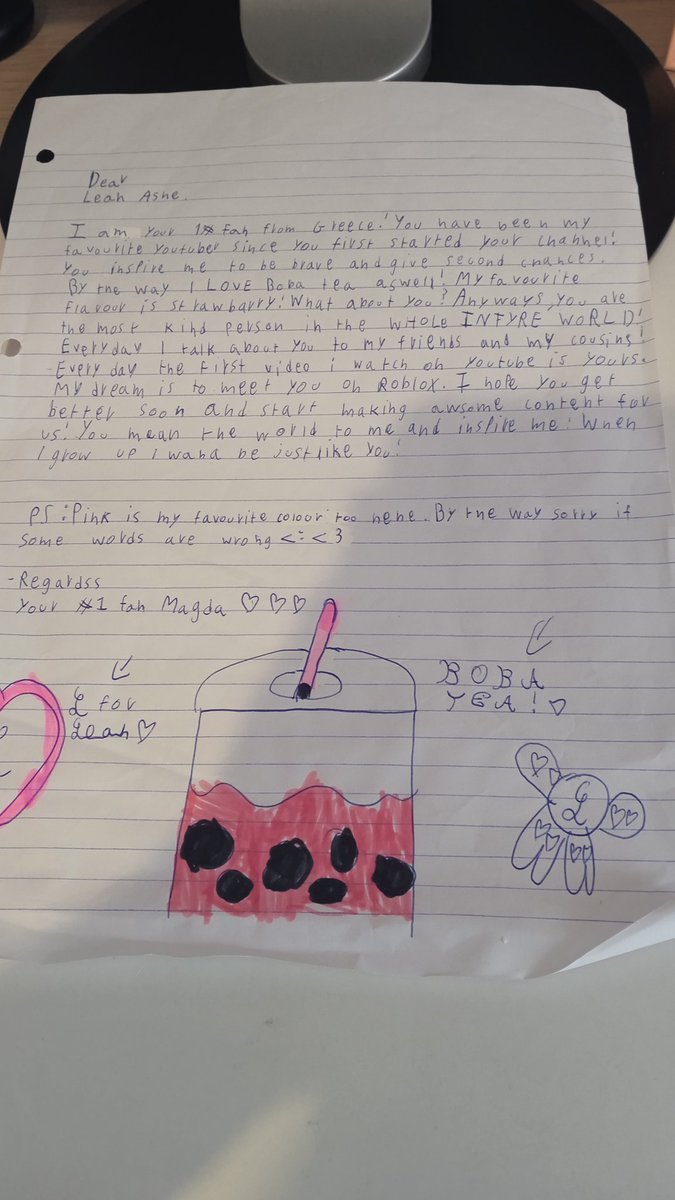 Dear
Leah Ashe.
I am your 1# fan from Greece! You have been my
favourite Youtuber since you first started your channel!
You inspire me to be brave and give second chances.
By the way I LOVE Boba tea aswell! My favourite
flavour is strawbarry! What about you? Anyways, you are
the most kind person in the WHOLE INTYRE WORLD!
Everyday I talk about you to my friends and my cousins!
Every day the first video i watch on youtube is yours.
My dream is to meet you on Roblox. I hope you get
better soon and start making awsome content for
us! You mean the world to me and inspire me! When
I grow up i wana be just like you!
PS: Pink is my favourite colour too hehe. By the way sorry if
some words are wrong <:<3
-Regardss
Your #1 fan Magda ♡ ♡ ♡
L for
Leah ♡
BOBA
TEA! ♡
L